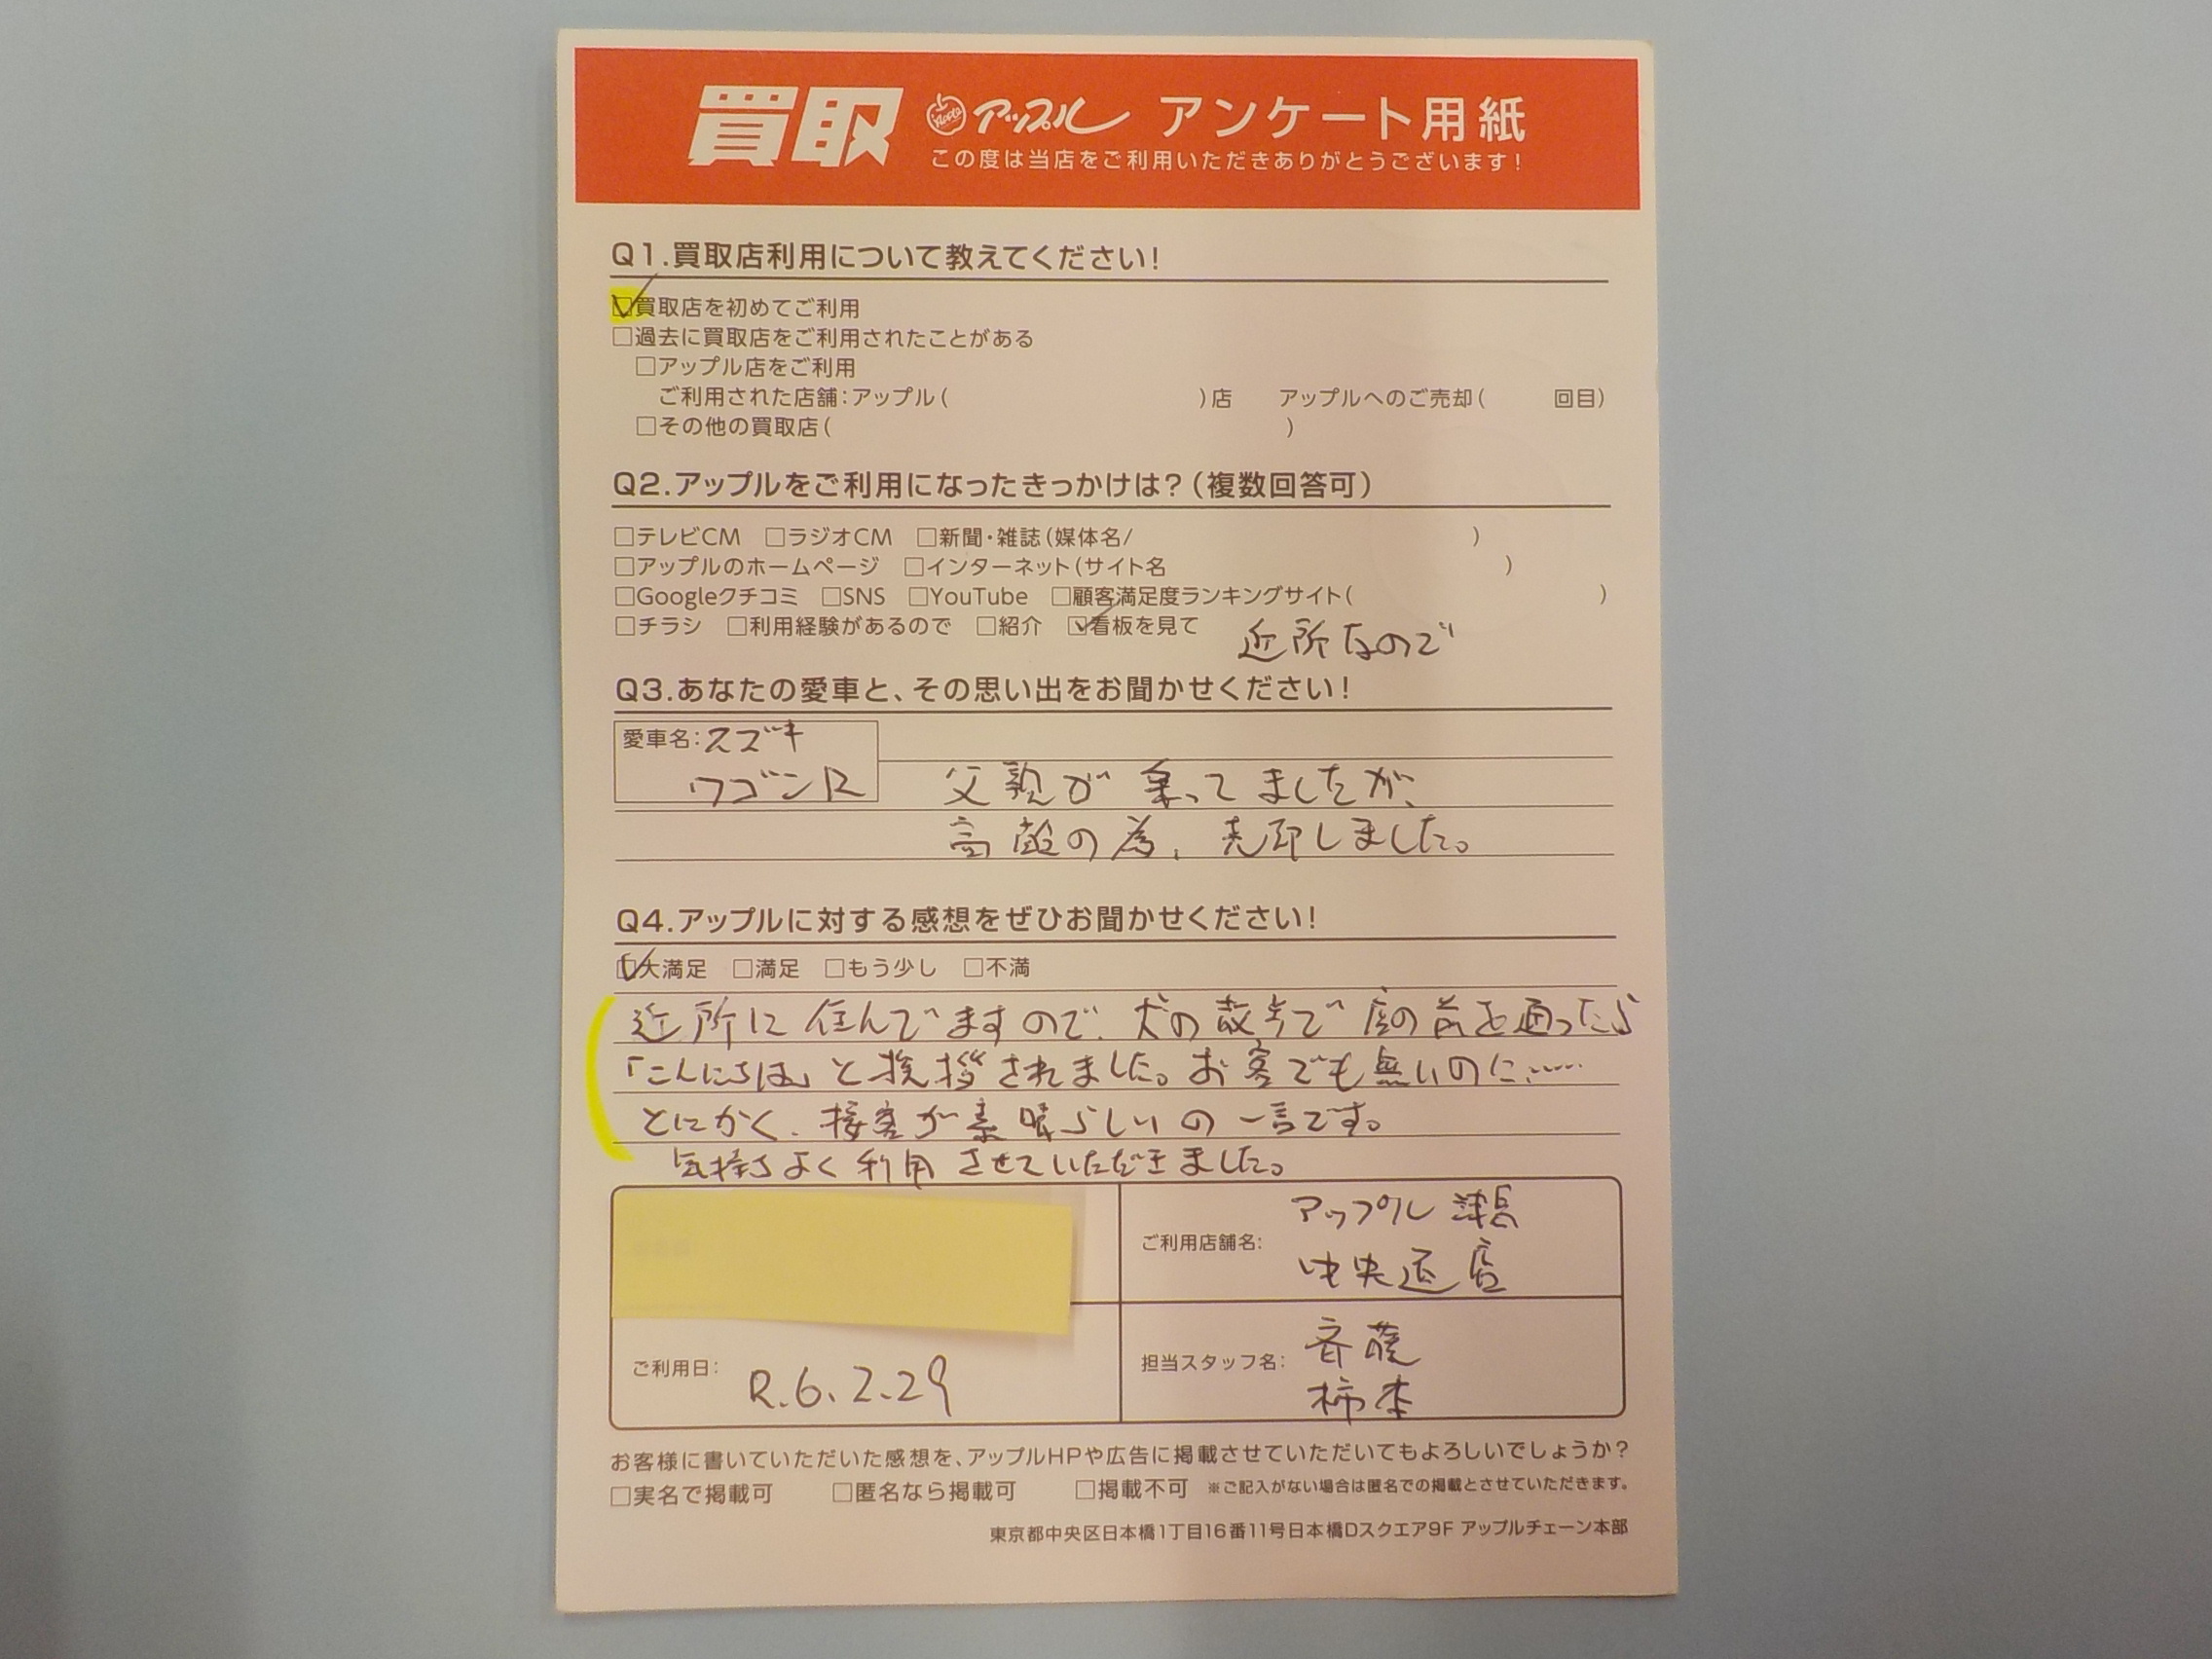 買取 アップル アンケート用紙
この度は当店をご利用いただきありがとうございます!
Q1.買取店利用について教えてください!
☑買取店を初めてご利用
□過去に買取店をご利用されたことがある
□アップル店をご利用
ご利用された店舗:アップル( )店 アップルへのご売却( 回目)
□その他の買取店( )
Q2.アップルをご利用になったきっかけは?(複数回答可)
□テレビCM □ラジオCM □新聞・雑誌(媒体名/ )
□アップルのホームページ □インターネット(サイト名 )
□Googleクチコミ □SNS □YouTube □顧客満足度ランキングサイト( )
□チラシ □利用経験があるので □紹介 ☑看板を見て 近所なので
Q3.あなたの愛車と、その思い出をお聞かせください!
愛車名:スズキ
ワゴンR 父親が乗ってましたが、
高齢の為、売却しました。
Q4.アップルに対する感想をぜひお聞かせください!
☑大満足 □満足 □もう少し □不満
近所に住んでますので、犬の散歩で店の前を通ったら
「こんにちは」と挨拶されました。お客でも無いのに……
とにかく、接客が素晴らしいの一言です。
気持ちよく利用させていただきました。
ご利用店舗名: アップル 津
中央道店
ご利用日: R.6.2.29
担当スタッフ名: 斉藤
柿本
お客様に書いていただいた感想を、アップルHPや広告に掲載させていただいてもよろしいでしょうか?
□実名で掲載可 □匿名なら掲載可 □掲載不可 ※ご記入がない場合は匿名での掲載とさせていただきます。
東京都中央区日本橋1丁目16番11号日本橋Dスクエア9F アップルチェーン本部